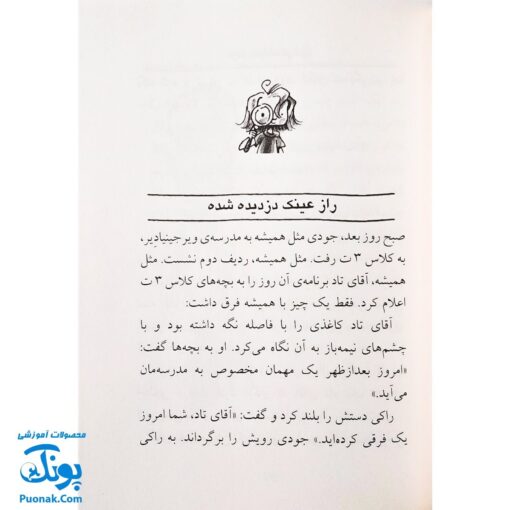 راز عینک دزدیده شده
صبح روز بعد، جودی مثل همیشه به مدرسه‌ی ویرجینیادِیر،
به کلاس ۳ ت رفت. مثل همیشه، ردیف دوم نشست. مثل
همیشه، آقای تاد برنامه‌ی آن روز را به بچه‌های کلاس ۳ ت
اعلام کرد. فقط یک چیز با همیشه فرق داشت:
آقای تاد کاغذی را با فاصله نگه داشته بود و با
چشم‌های نیمه‌باز به آن نگاه می‌کرد. او به بچه‌ها گفت:
«امروز بعدازظهر یک مهمان مخصوص به مدرسه‌مان
می‌آید.»
راکی دستش را بلند کرد و گفت: «آقای تاد، شما امروز
یک فرقی کرده‌اید.» جودی رویش را برگرداند. به راکی
محصولات آموزشی
پونک
Puonak.Com